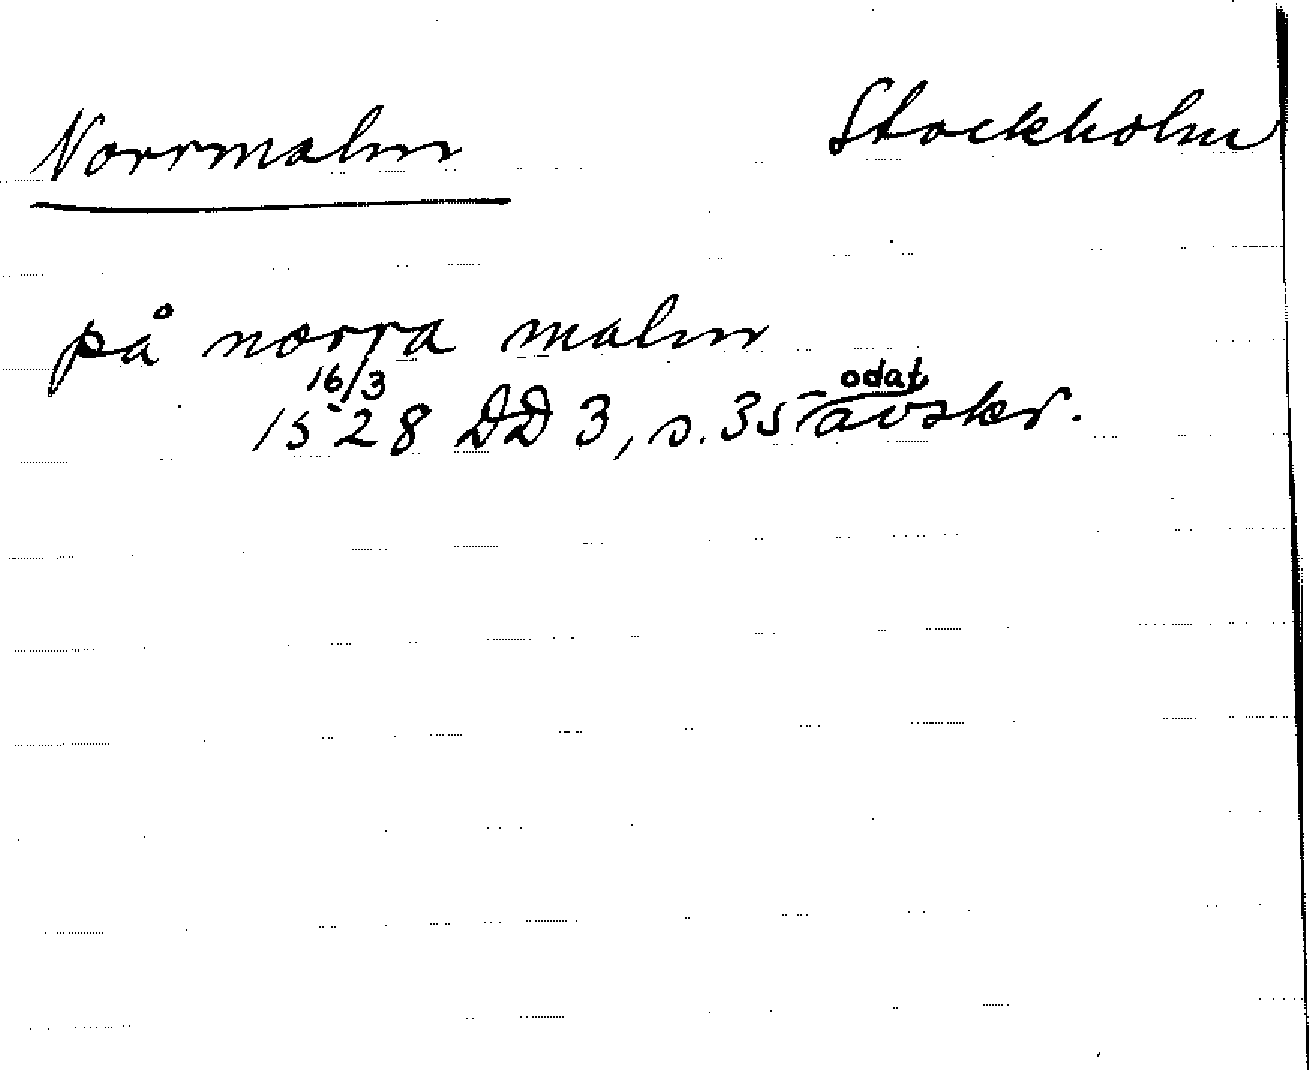 Norrmalm Stockholm
på norra malm
16/3
1528 DD 3, s. 35 odat avskr.